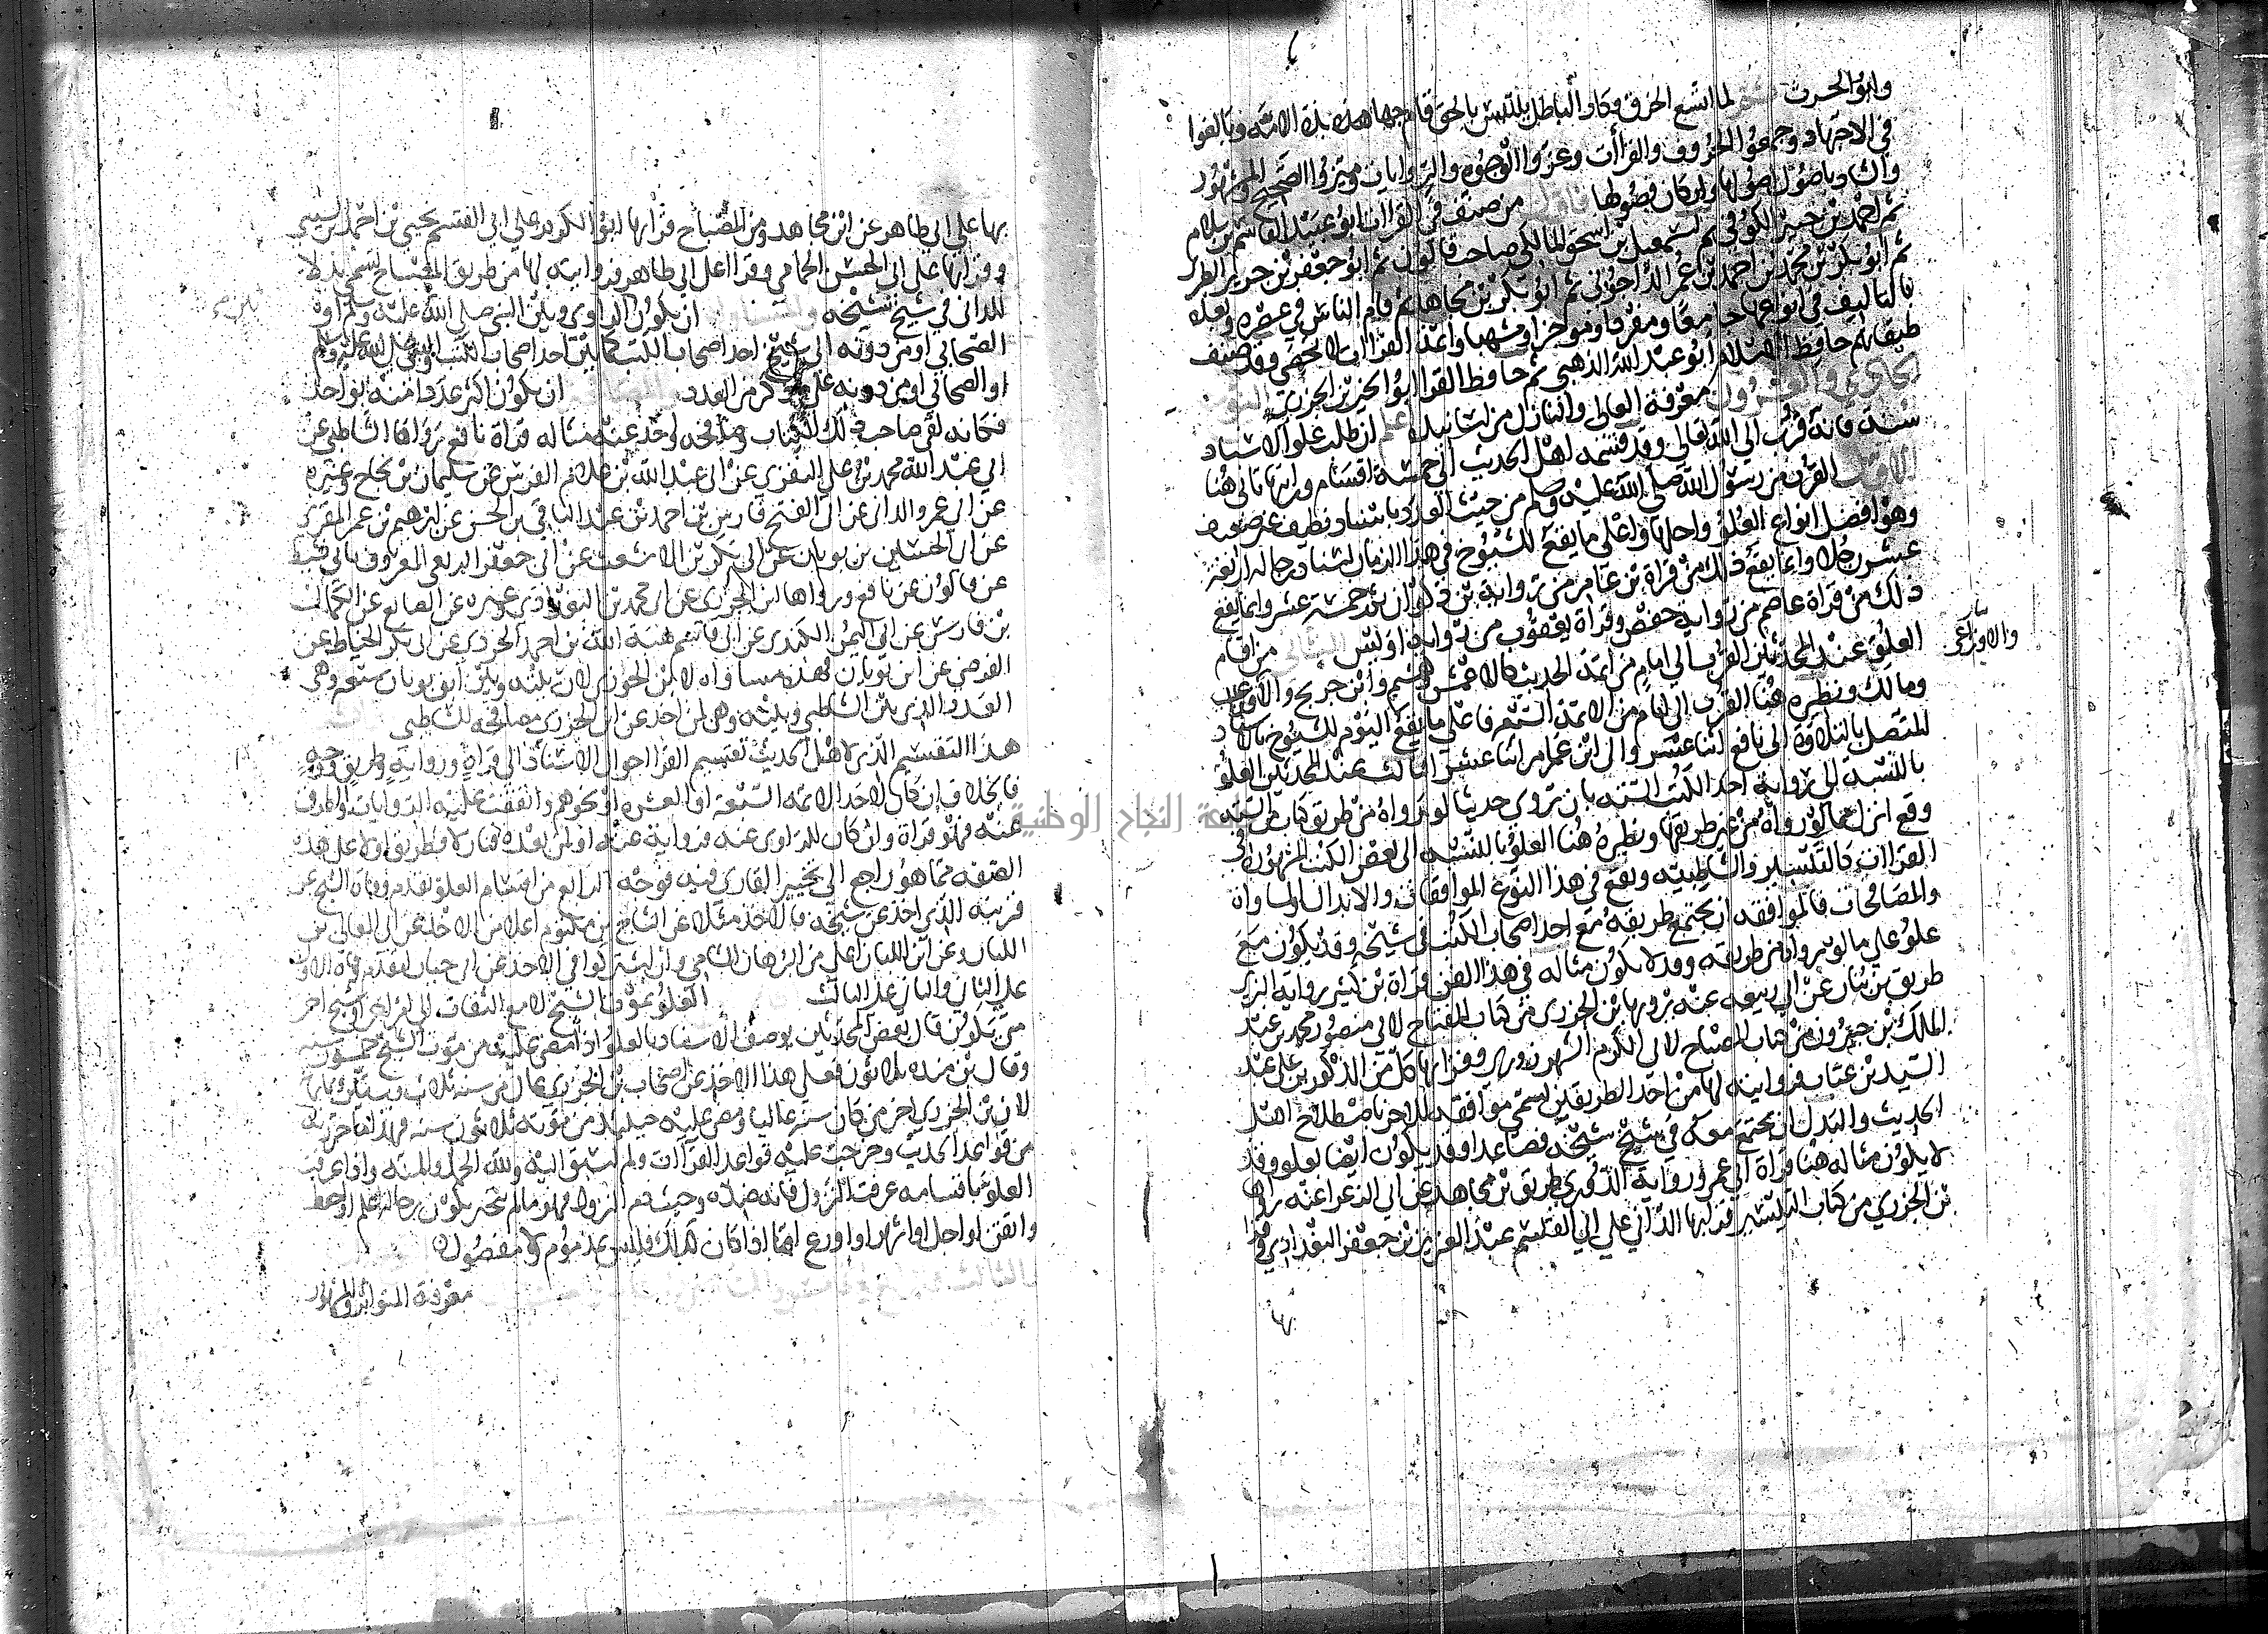 وابو الحرث ثم لما اتسع الخرق وكاد الباطل يلتبس بالحق قام جهابذة الامة وبالغوا
في الاجتهاد وجمعوا الحروف والقراآت وعزوا الوجوه والروايات وميزوا الصحيح والمشهور
والشاذ باصول اصلوها واركان فصلوها فاول من صنف في القراات ابو عبيد القاسم بن سلام
ثم احمد بن جبير الكوفي ثم اسمعيل بن اسحق المالكي صاحب قالون ثم ابو جعفر بن جرير الطبري
ثم ابو بكر بن محمد بن احمد بن عمر الداجوني ثم ابو بكر بن مجاهد ثم قام الناس في عصره وبعده
بالتاليف في انواعها جامعا ومفردا وموجزا ومسهبا وائمة القراات لا تحصى وقد صنف
طبقاتهم حافظ الاسلام ابو عبد الله الذهبي ثم حافظ القرا ابو الخير بن الجزري النوع
الحادي والعشرون معرفة العالي والنازل من اسانيده اعلم ان طلب علو الاسناد
سنة فانه قرب الى الله تعالى وقد قسمه اهل الحديث الى خمسة اقسام ورايتها تاتي هنا
الاول القرب من رسول الله صلى الله عليه وسلم من حيث العدد باسناد نظيف غير ضعيف
وهو افضل انواع العلو واجلها واعلى ما يقع للشيوخ في هذا الزمان اسناد رجاله اربعة
عشر رجلا وانما يقع ذلك من قراة بن عامر من رواية بن ذكوان ثم خمسة عشر وانما يقع
ذلك من قراة عاصم من رواية حفص وقراة يعقوب من رواية رويس الثاني من اقسام
العلو عند المحدثين القرب الى امام من ائمة الحديث كالاعمش وهشيم وابن جريج والاوزاعي
والاوزاعي
ومالك ونظيره هنا القرب الى امام من الائمة السبعة فاعلى ما يقع اليوم للشيوخ بالاسناد
المتصل بالتلاوة الى نافع اثنا عشر والى ابن عامر اثنا عشر الثالث عند المحدثين العلو
بالنسبة الى رواية احد الكتب الستة بان يروي حديثا لو رواه من طريق كتاب من الستة
وقع انزل مما لو رواه من غير طريقها ونظيره هنا العلو بالنسبة الى بعض الكتب المشهورة في
القراات كالتيسير والشاطبية ويقع في هذا النوع الموافقات والابدال والمساواة
والمصافحات فالموافقة ان تجتمع طريقه مع احد اصحاب الكتب في شيخه وقد يكون مع
علو على ما لو رواه من طريقه وقد لا يكون مثاله في هذا الفن قراة بن كثير رواية البزي
طريق بن بنان عن ابي ربيعه عنه يرويها بن الجزري من كتاب المفتاح لابي منصور محمد بن عبد
الملك بن خيرون ومن كتاب المصباح لابي الكرم الشهرزوري وقرا بها كل من المذكورين على عبد
السيد بن عتاب فروايته لها من احد الطريقين تسمى موافقة للاخر باصطلاح اهل
الحديث والبدل ان يجتمع معه في شيخ شيخه فصاعدا وقد يكون ايضا بعلو وقد
لا يكون مثاله هنا قراة ابي عمرو رواية الدوري طريق بن مجاهد عن ابي الزعرا عنه رواها
بن الجزري من كتاب التيسير قرا بها الداني على ابي القاسم عبد العزيز بن جعفر البغدادي وقرا
بها
بها على ابي طاهر عن ابن مجاهد ومن المصباح قرا بها ابو الكرم على ابي القسم يحيى بن احمد السيبي
وقرا بها على ابي الحسن الحمامي وقرا على ابي طاهر فروايته لها من طريق المصباح تسمى بدلا
للداني في شيخ شيخه والمساواة ان يكون بين الراوي وبين النبي صلى الله عليه وسلم او
الصحابي او من دونه الى شيخ احد اصحاب الكتب كما بين احد اصحاب الكتب والنبي صلى الله عليه وسلم
او الصحابي او من دونه على ما ذكر من العدد والمصافحة ان يكون اكثر عددا منه بواحد
فكانه لقي صاحب ذلك الكتاب وصافحه واخذ عنه مثاله قراة نافع رواها الشاطبي عن
ابي عبد الله محمد بن علي النفزي عن ابي عبد الله بن غلام الفرس عن سليمان بن نجاح وغيره
عن ابي عمرو الداني عن ابي الفتح فارس بن احمد عن عبد الباقي بن الحسن عن ابرهيم بن عمر المقري
عن ابي الحسين بن بويان عن ابي بكر بن الاشعث عن ابي جعفر الربعي المعروف بابي نشيط
عن قالون عن نافع ورواها ابن الجزري عن ابي محمد بن البغدادي وغيره عن الصايغ عن الكمال
بن فارس عن ابي اليمن الكندي عن ابي القاسم هبة الله بن احمد الحريري عن ابي بكر الخياط عن
الفرضي عن ابن بويان فهذه مساواة لابن الجزري لان بينه وبين ابن بويان سبعة وهي
العدد الذي بين الشاطبي وبينه وهي لمن اخذ عن ابن الجزري مصافحة للشاطبي
هذا التقسيم الذي لاهل الحديث تقسيم القرا احوال الاسناد الى قراة ورواية وطريق ووجه
فالخلاف ان كان لاحد الائمة السبعة او العشرة او نحوهم واتفقت عليه الروايات والطرق
عنه فهو قراة وان كان للراوي عنه فرواية عنه او لمن بعده فنازلا فطريق او لا على هذه
الصفة مما هو راجع الى تخيير القاري فيه فوجه الرابع من اقسام العلو تقدم وفاة الشيخ عن
قرينه الذي اخذ عن شيخه فالاخذ مثلا عن التاج بن مكتوم اعلا من الاخذ عن ابي المعالي بن
اللبان وعن ابن اللبان اعلى من البرهان الشامي وان اشتركوا في الاخذ عن ابي حيان لتقدم وفاة الاول
على الثاني والثاني على الثالث العلو بموت الشيخ لا مع التفات الى امر اخر او شيخ اخر
متى يكون قال بعض المحدثين يوصف الاسناد بالعلو اذا مضى عليه من موت الشيخ خمسون سنة
وقال بن منده ثلاثون فعلى هذا الاخذ عن اصحاب بن الجزري عال من سنة ثلاث وستين وثمانمائة
لان بن الجزري اخر من كان سنده عاليا ومضى عليه حينئذ من موته ثلاثون سنة فهذا ما حررته
من قواعد الحديث وخرجت عليه قواعد القراآت ولم اسبق اليه ولله الحمد والمنة واذا عرفت
العلو باقسامه عرفت النزول فانه ضده وحيث ذم النزول فهو ما لم ينجبر بكون رجاله اعلم او احفظ
واتقن او اجل او اشهر او اورع اما اذا كان كذلك فليس بمذموم ولا مفضول
معرفة المتواتر والمشهور
جامعة النجاح الوطنية